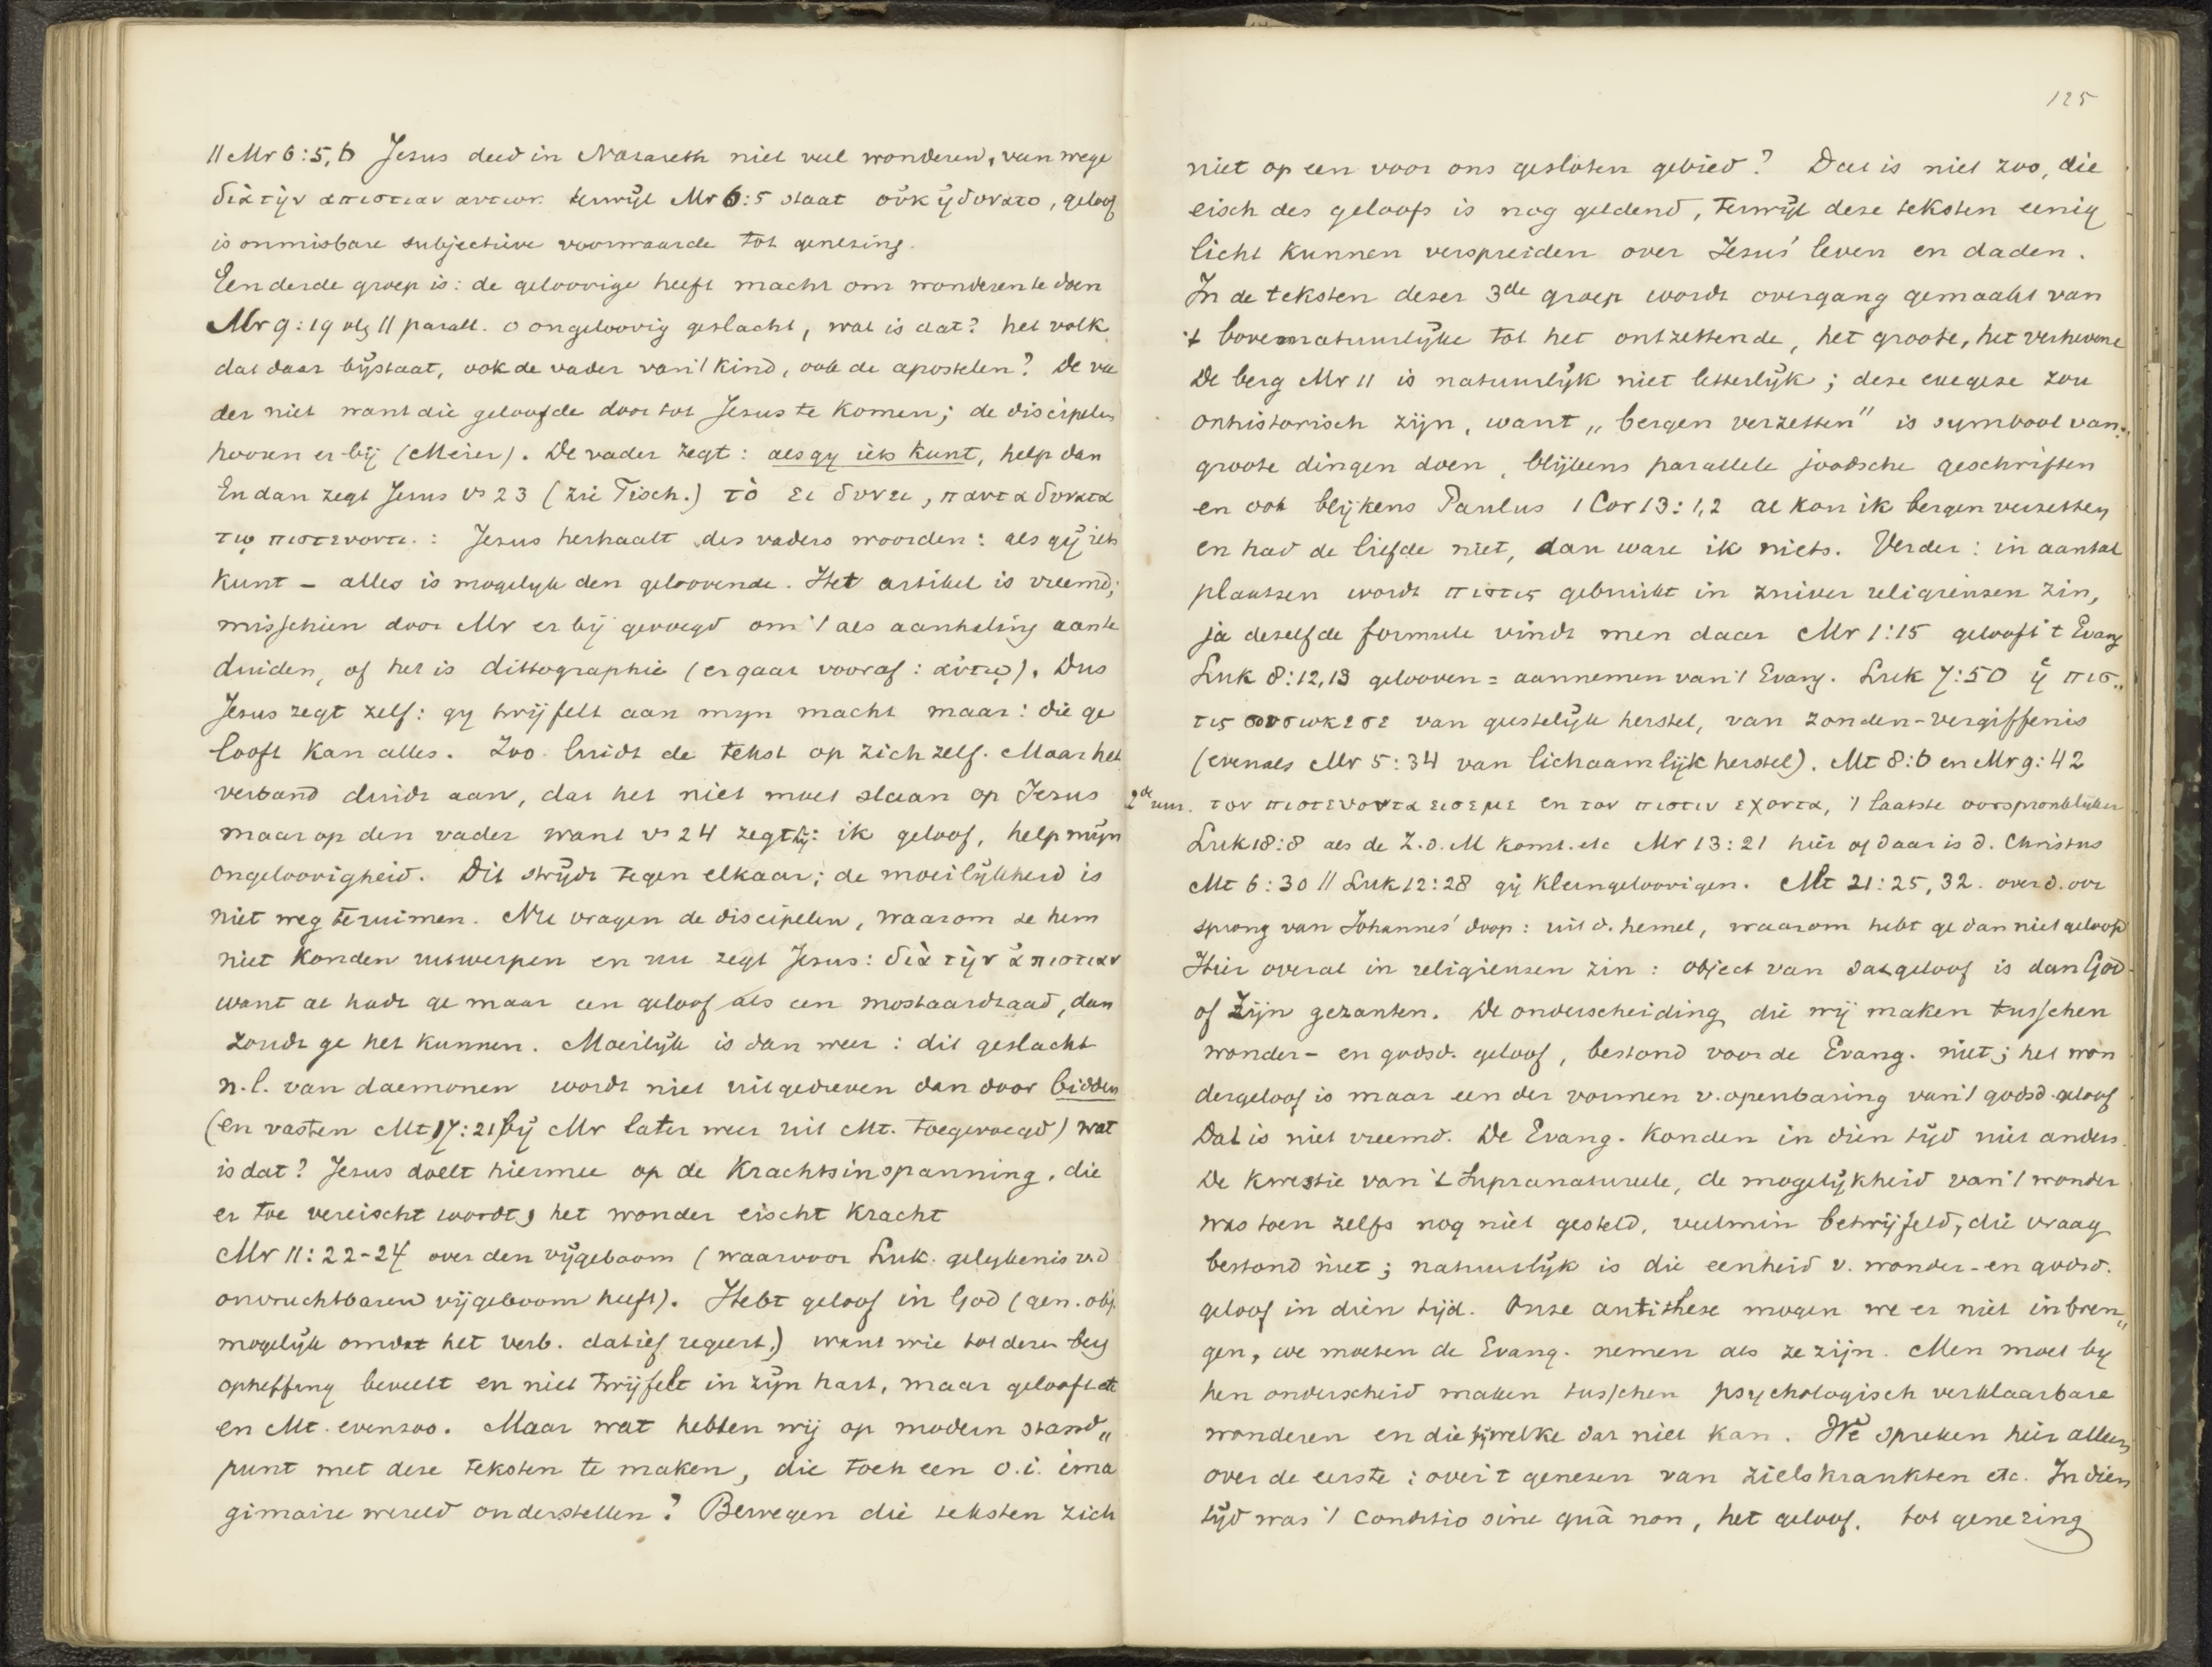 || Mr 6:5,6 Jezus deed in Nazareth niet veel wonderen, van wege
διὰ τὴν απιστιαν αυτων. terwijl Mr 6:5 staat οὐκ ἠδυνατο, geloof
is onmisbare subjectieve voorwaarde tot genezing.
Een derde groep is: de geloovige heeft macht om wonderen te doen
Mr 9:19 vlg || parall. o ongeloovig geslacht, wat is dat? het volk
dat daar bijstaat, ook de vader van 't kind, ook de apostelen? De va
der niet want die geloofde door tot Jezus te komen; de discipelen
hooren er bij (Meier). De vader zegt: als gy iets kunt, help dan
En dan zegt Jezus vs 23 (zie Tisch.) τὸ ει δυνει, παντα δυνατα
τῳ πιστευοντι.: Jezus herhaalt des vaders woorden: als gij iets
kunt – alles is mogelyk den geloovende. Het artikel is vreemd;
misschien door Mr er bij gevoegd om 't als aanhaling aan te
duiden, of het is dittographie (er gaat vooraf: αὐτῳ). Dus
Jezus zegt zelf: gy twijfelt aan myn macht maar: die ge
looft kan alles. Zoo luidt de tekst op zich zelf. Maar het
verband duidt aan, dat het niet moet slaan op Jezus
maar op den vader want vs 24 zegt hij: ik geloof, help mijn
ongeloovigheid. Dit strijdt tegen elkaar; de moeilijkheid is
niet weg te ruimen. Nu vragen de discipelen, waarom ze hem
niet konden uitwerpen en nu zegt Jezus: διὰ τὴν ἀπιστιαν
want al hadt ge maar een geloof als een mostaardzaad, dan
zoudt ge het kunnen. Moeilijk is dan weer: dit geslacht
n.l. van daemonen wordt niet uitgedreven dan door bidden
(en vasten Mt 17:21 bij Mr later weer uit Mt. toegevoegd) wat
is dat? Jezus doelt hiermee op de krachtsinspanning, die
er toe vereischt wordt, het wonder eischt kracht
Mr 11:22-24 over den vijgeboom (waarvoor Luk. gelykenis v.d
onvruchtbaren vijgeboom heeft). Hebt geloof in God (gen. obj.
mogelijk omdat het verb. datief regeert.) want wie tot dezen berg
opheffing beveelt en niet twijfelt in zijn hart, maar gelooft etc
en Mt. evenzoo. Maar wat hebben wij op modern stand„
punt met deze teksten te maken, die toch een o.i. ima
ginaire wereld onderstellen? Bewegen die teksten zich
125
niet op een voor ons gesloten gebied? Dat is niet zoo, die
eisch des geloofs is nog geldend, terwijl deze teksten eenig
licht kunnen verspreiden over Jezus' leven en daden.
In de teksten dezer 3de groep wordt overgang gemaakt van
't bovennatuurlijke tot het ontzettende, het groote, het verhevene
De berg Mr 11 is natuurlijk niet letterlijk; deze exegese zou
onhistorisch zijn, want „bergen verzetten" is symbool van
groote dingen doen, blijkens parallele joodsche geschriften
en ook blijkens Paulus 1 Cor 13:1,2 al kon ik bergen verzetten
en had de liefde niet, dan ware ik niets. Verder: in aantal
plaatsen wordt πιστις gebruikt in zuiver religieusen zin,
ja dezelfde formule vindt men daar Mr 1:15 gelooft 't Evang
Luk 8:12,13 gelooven = aannemen van 't Evang. Luk 7:50 ἡ πισ„
τις σου σωκε σε van geestelijk herstel, van zonden-vergiffenis
(evenals Mr 5:34 van lichaamlijk herstel). Mt 8:6 en Mr 9:42
2de nm. τον πιστευοντα εισ εμε en τον πιστιν εχοντα, 't laatste oorspronklijker
Luk 18:8 als de Z.d.M komt. etc Mr 13:21 hier of daar is d. Christus
Mt 6:30 || Luk 12:28 gij kleingeloovigen. Mt 21:25,32. over d. oor
sprong van Johannes' doop: uit d. hemel, waarom hebt ge dan niet geloofd
Hier overal in religieusen zin: object van dat geloof is dan God
of Zijn gezanten. De onderscheiding die wij maken tusschen
wonder- en godsd. geloof, bestond voor de Evang. niet; het won
dergeloof is maar een der vormen v. openbaring van 't godsd. geloof
Dat is niet vreemd. De Evang. konden in dien tijd niet anders.
De kwestie van 't supranatureele, de mogelijkheid van 't wonder
was toen zelfs nog niet gesteld, veelmin betwijfeld, die vraag
bestond niet; natuurlijk is die eenheid v. wonder- en godsd.
geloof in dien tijd. Onze antithese mogen we er niet in bren„
gen, we moeten de Evang. nemen als ze zijn. Men moet by
hen onderscheid maken tusschen psychologisch verklaarbare
wonderen en die bij welke dat niet kan. We spreken hier alleen
over de eerste: over 't genezen van zielskrankten etc. In dien
tijd was 't conditio sine quâ non, het geloof. tot genezing